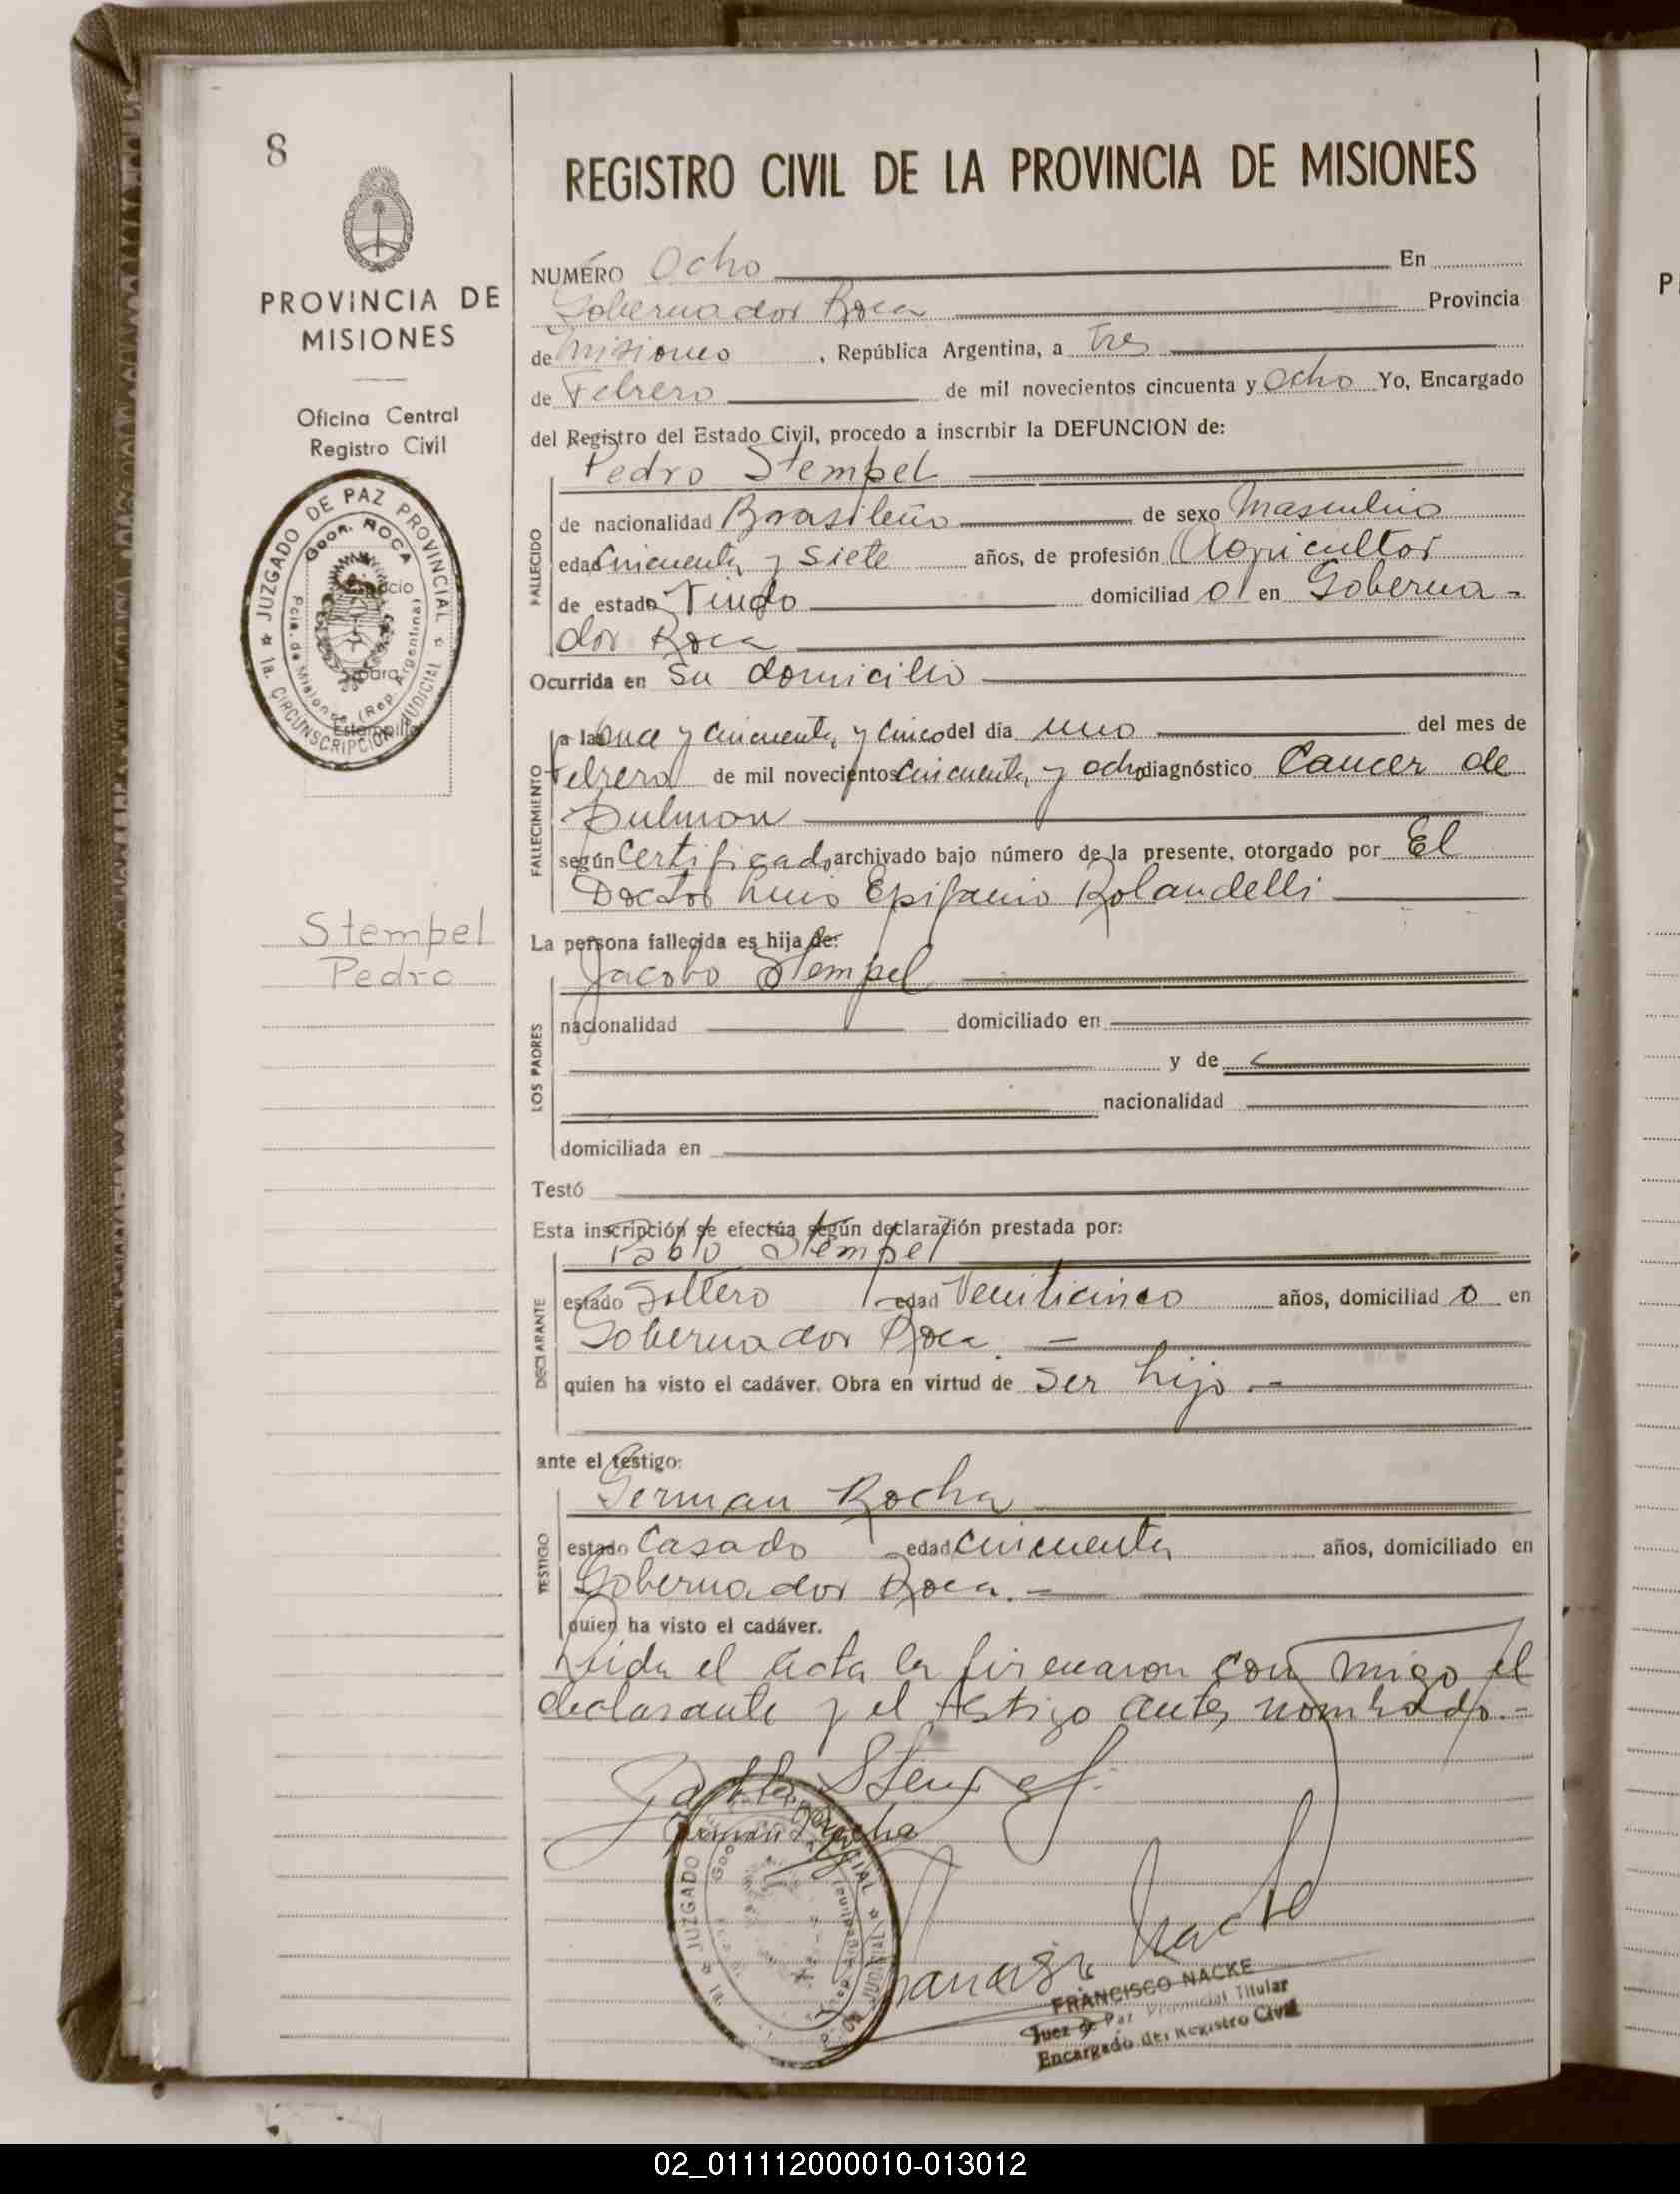 8
PROVINCIA DE
MISIONES
Oficina Central
Registro Civil
JUZGADO DE PAZ PROVINCIAL
Gdor. ROCA
Pcia. de Misiones (Rep. Argentina)
1a. CIRCUNSCRIPCION JUDICIAL
Espacio
para
Estampilla
Stempel
Pedro
REGISTRO CIVIL DE LA PROVINCIA DE MISIONES
NUMERO Ocho En
Gobernador Roca Provincia
de Misiones , República Argentina, a Tres
de Febrero de mil novecientos cincuenta y Ocho Yo, Encargado
del Registro del Estado Civil, procedo a inscribir la DEFUNCION de:
Pedro Stempel
FALLECIDO
de nacionalidad Brasileño de sexo Masculino
edad Cincuenta y Siete años, de profesión Agricultor
de estado Viudo domiciliad o en Goberna-
dor Roca
Ocurrida en Su domicilio
FALLECIMIENTO
a las Once y Cincuenta y Cinco del día uno del mes de
Febrero de mil novecientos Cincuenta y ocho diagnóstico Cancer de
Pulmon
según Certificado archivado bajo número de la presente, otorgado por El
Doctor Luis Epifanio Rolandelli
La persona fallecida es hija de:
Jacobo Stempel
LOS PADRES
nacionalidad domiciliado en
y de
nacionalidad
domiciliada en
Testó
Esta inscripción se efectúa según declaración prestada por:
Pablo Stempel
DECLARANTE
estado Soltero edad Veinticinco años, domiciliad o en
Gobernador Roca. -
quien ha visto el cadáver. Obra en virtud de Ser hijo.-
ante el testigo:
German Rocha
TESTIGO
estado Casado edad Cincuenta años, domiciliado en
Gobernador Roca. -
quien ha visto el cadáver.
Leida el acta la firmaron con migo el
declarante y el testigo antes nombrado.-
Pablo Stempel
German Rocha
JUZGADO
1a.
Francisco Nacke
FRANCISCO NACKE
Juez de Paz Provincial Titular
Encargado del Registro Civil
P
02_011112000010-013012